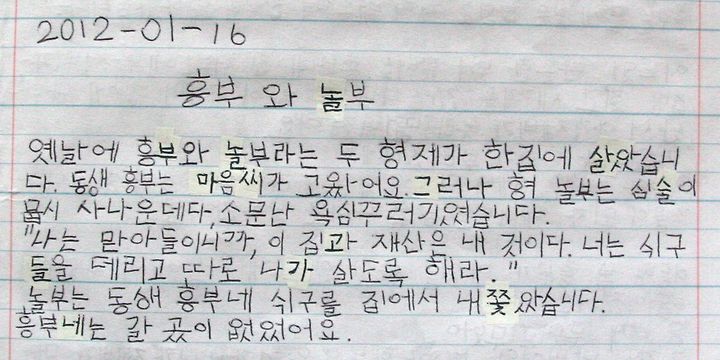 2012-01-16
흥부 와 놀부
옛날에 흥부와 놀부라는 두 형제가 한집에 살았습니
다. 동생 흥부는 마음씨가 고왔어요. 그러나 형 놀부는 심술이
몹시 사나운데다, 소문난 욕심꾸러기였습니다.
"나는 맏아들이니까, 이 집과 재산은 내 것이다. 너는 식구
들을 데리고 따로 나가 살도록 해라."
놀부는 동생 흥부네 식구를 집에서 내쫓았습니다.
흥부네는 갈 곳이 없었어요.